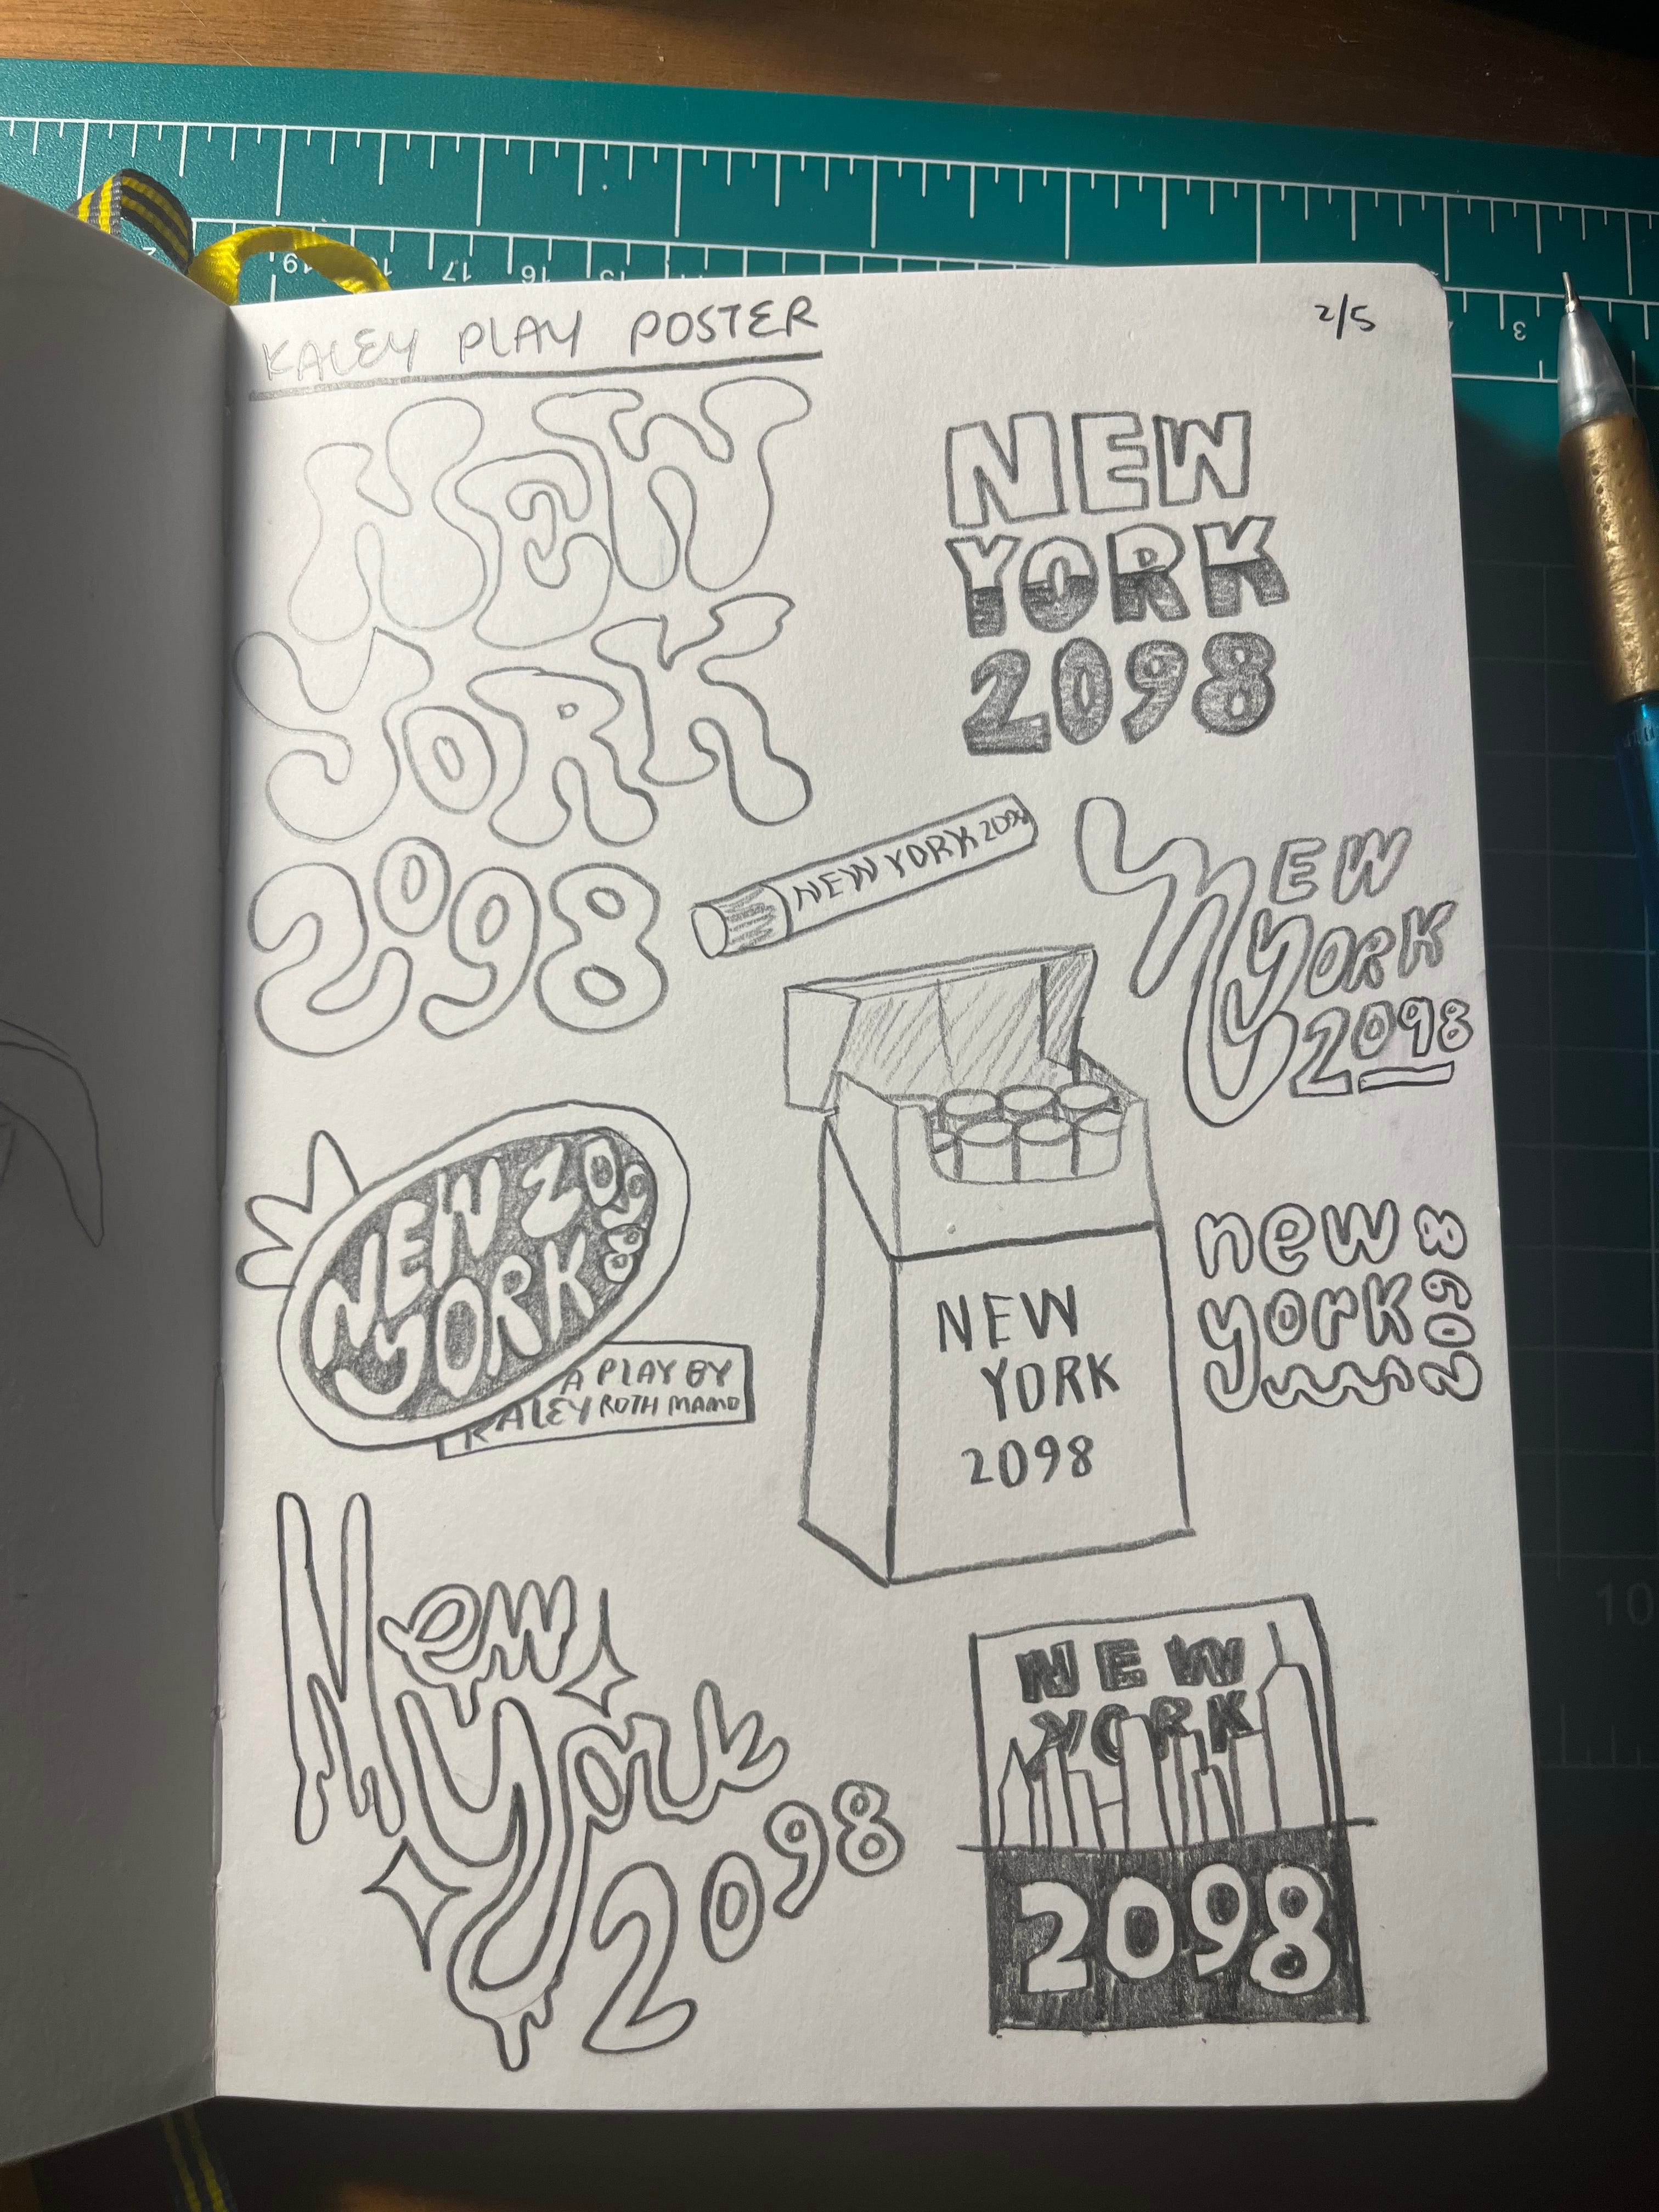 KALEY PLAY POSTER
2/5
NEW
YORK
2098
NEW
YORK
2098
NEW YORK 2098
NEW
YORK
2098
NEW
YORK
2098
A PLAY BY
KALEY ROTH MAMO
NEW
YORK
2098
new
york
2098
New
York
2098
NEW
YORK
2098
19
17
16
15
3
10